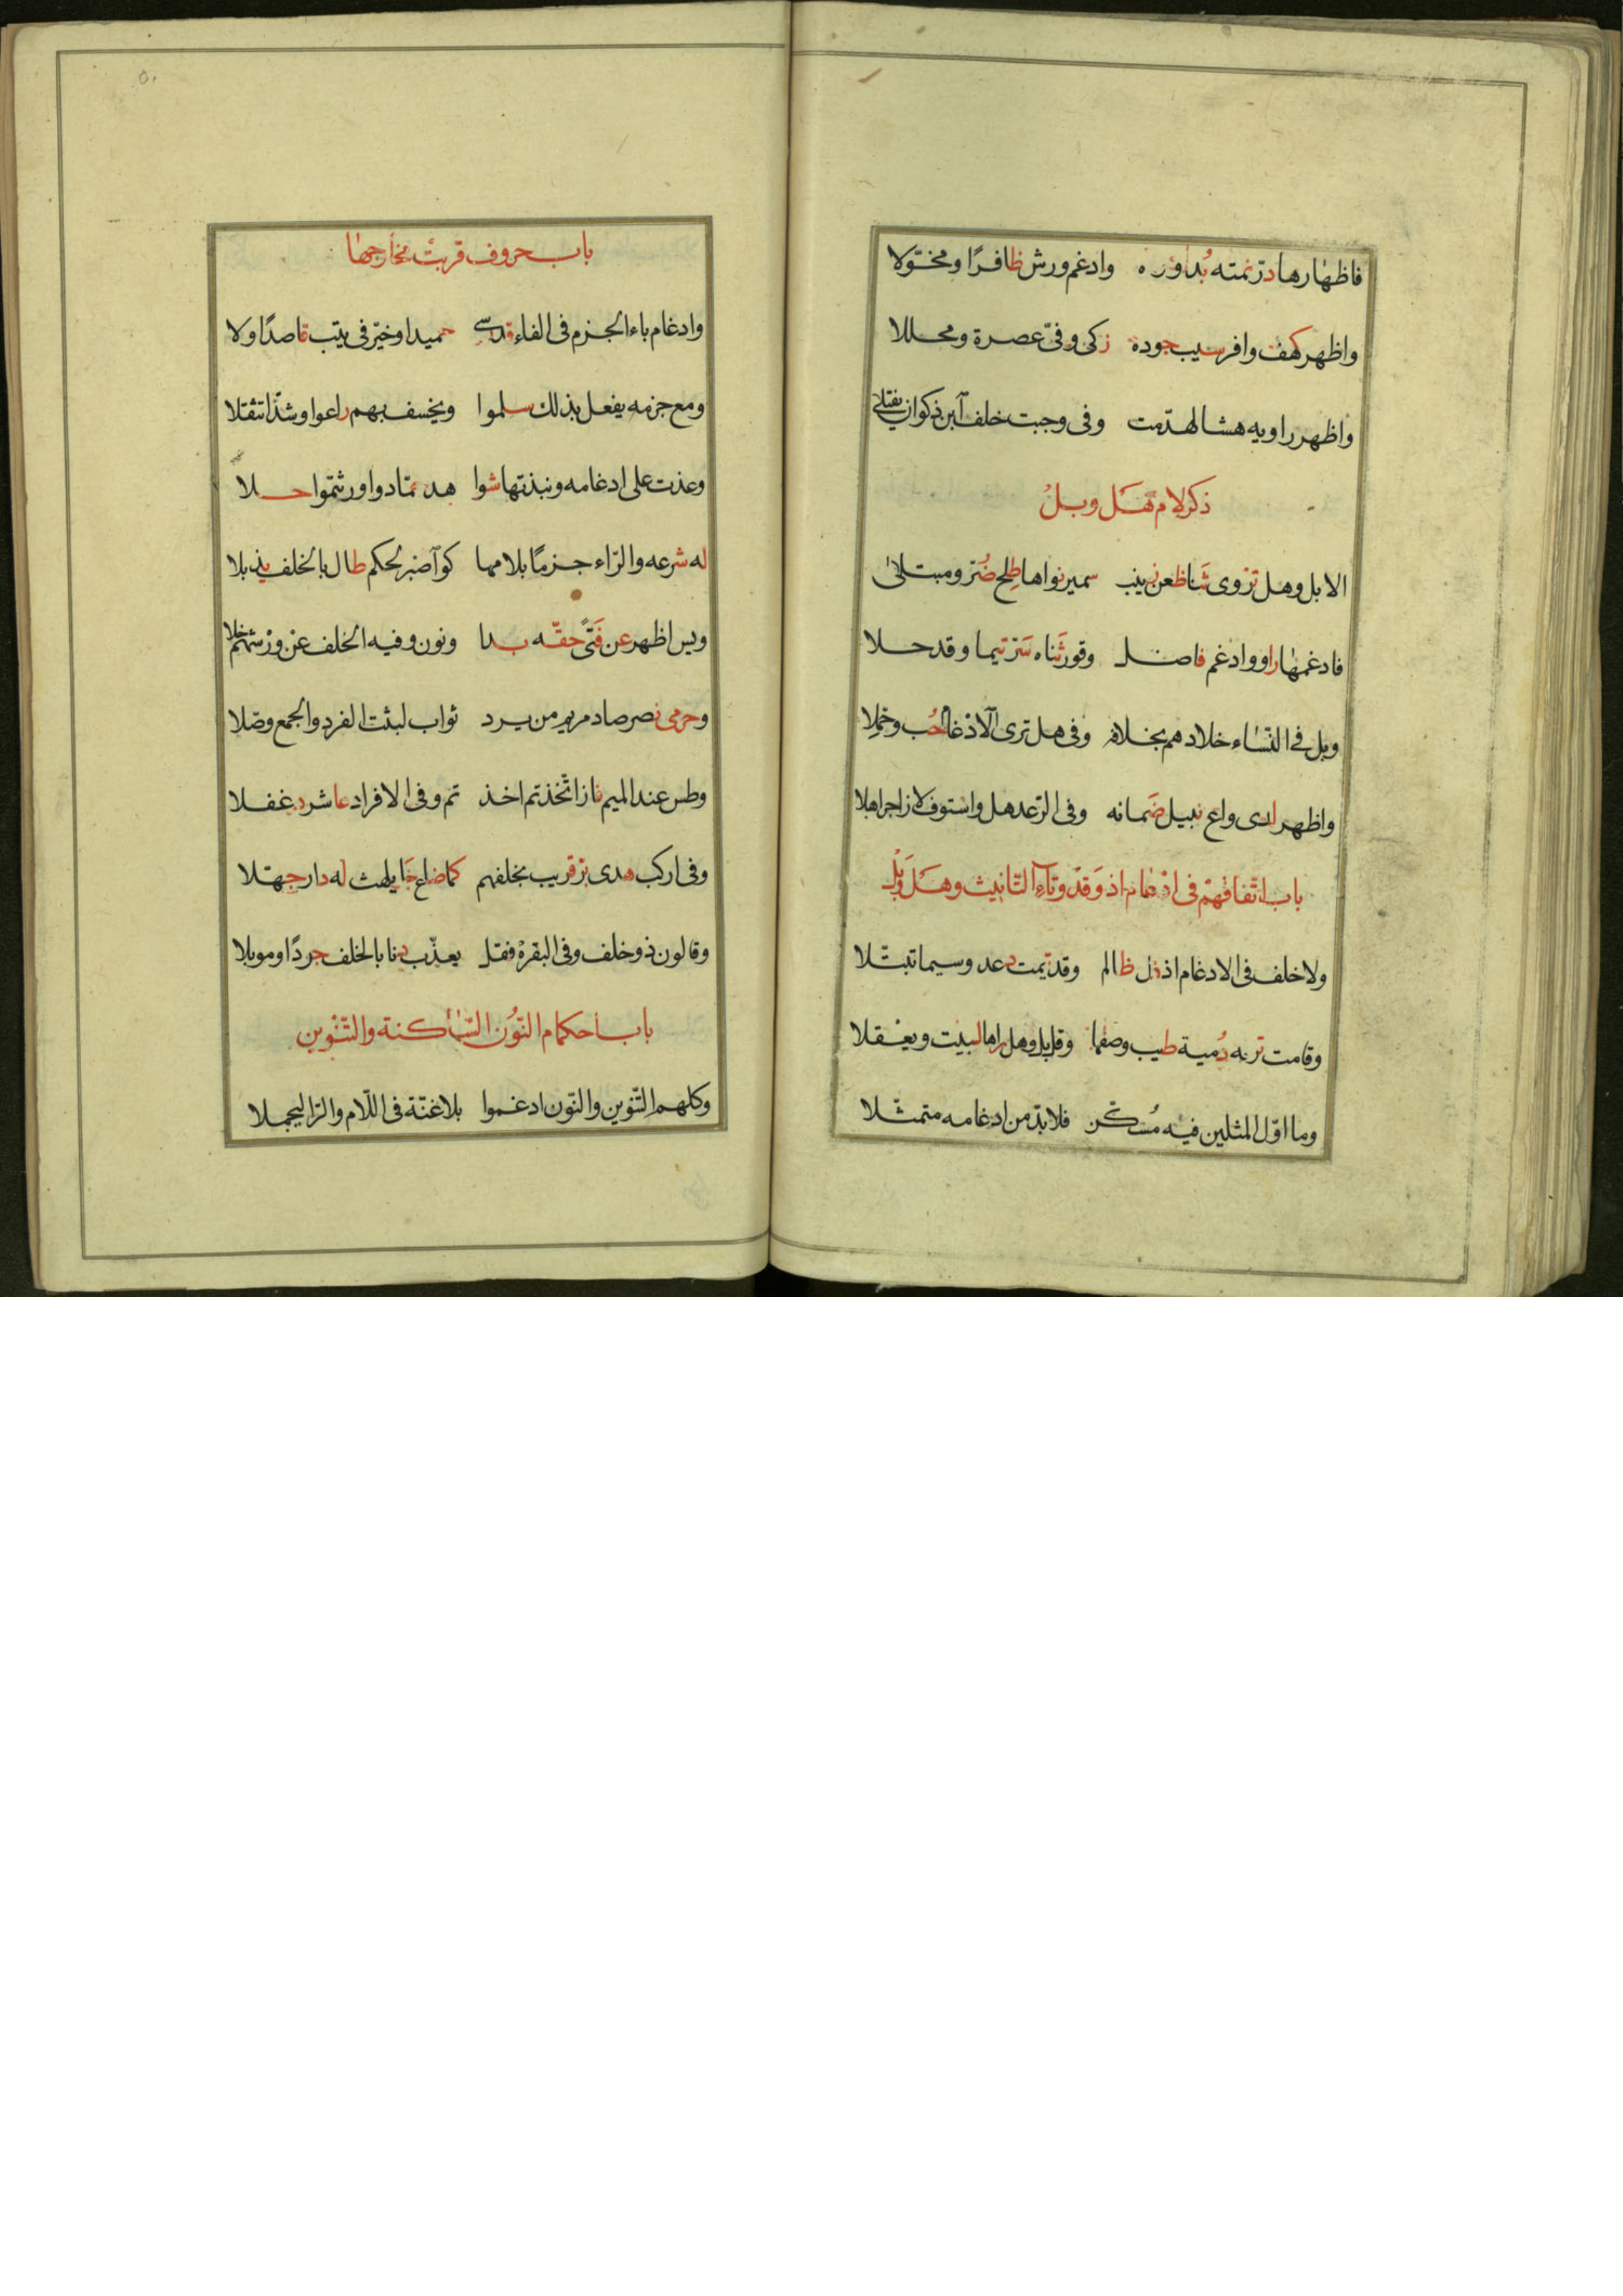 فاظهارها در نمته بدوره وادغم ورش ظافرا ومخولا
واظهر كهف وافر سيب جوده زكى وفى عصرة ومحللا
واظهر راويه هشام لهدمت وفى وجبت خلف ابن ذكوان يفتلى
ذكر لام هل وبل
الا بل وهل تروى ثنا ظعن زينب سمير نواها طلح ضر ومبتلى
فادغمها راو وادغم فاضل وقور ثناه سر تيما وقد حلا
وبل فى النساء خلادهم بخلافه وفى هل ترى الادغام حب وحملا
واظهر لدى واع نبيل ضمانه وفى الرعد هل واستوف لا زاجرا هلا
باب اتفاقهم فى ادغام اذ وقد وتاء التانيث وهل وبل
ولا خلف فى الادغام اذ ذل ظالم وقد تيمت دعد وسيما تبتلا
وقامت تريه دمية طيب وصفها وقل بل وهل راها لبيت ويعقلا
وما اول المثلين فيه مسكن فلا بد من ادغامه متمثلا
٥٠
باب حروف قربت مخارجها
وادغام باء الجزم فى الفاء قد رسى حميدا وخير فى يتب قاصدا ولا
ومع جزمه يفعل بذلك سلموا ويخسف بهم راعوا وشذا تثقلا
وعذت على ادغامه ونبذتها شواهد حماد واورثتموا حلا
له شرعه والراء جزما بلامها كواصبر لحكم طال بالخلف يذبلا
ويس اظهر عن فتى حقه بدا ونون وفيه الخلف عن ورشهم خلا
وحرمى نصر صاد مريم من يرد ثواب لبثت الفرد والجمع وصلا
وطس عند الميم فاز اتخذتم اخذتم وفى الافراد عاشر دغفلا
وفى اركب هدى بر قريب بخلفهم كما ضاع جا يلهث له دار جهلا
وقالون ذو خلف وفى البقره فقل يعذب دنا بالخلف جودا وموبلا
باب احكام النون الساكنة والتنوين
وكلهم التنوين والنون ادغموا بلا غنة فى اللام والرا ليجملا